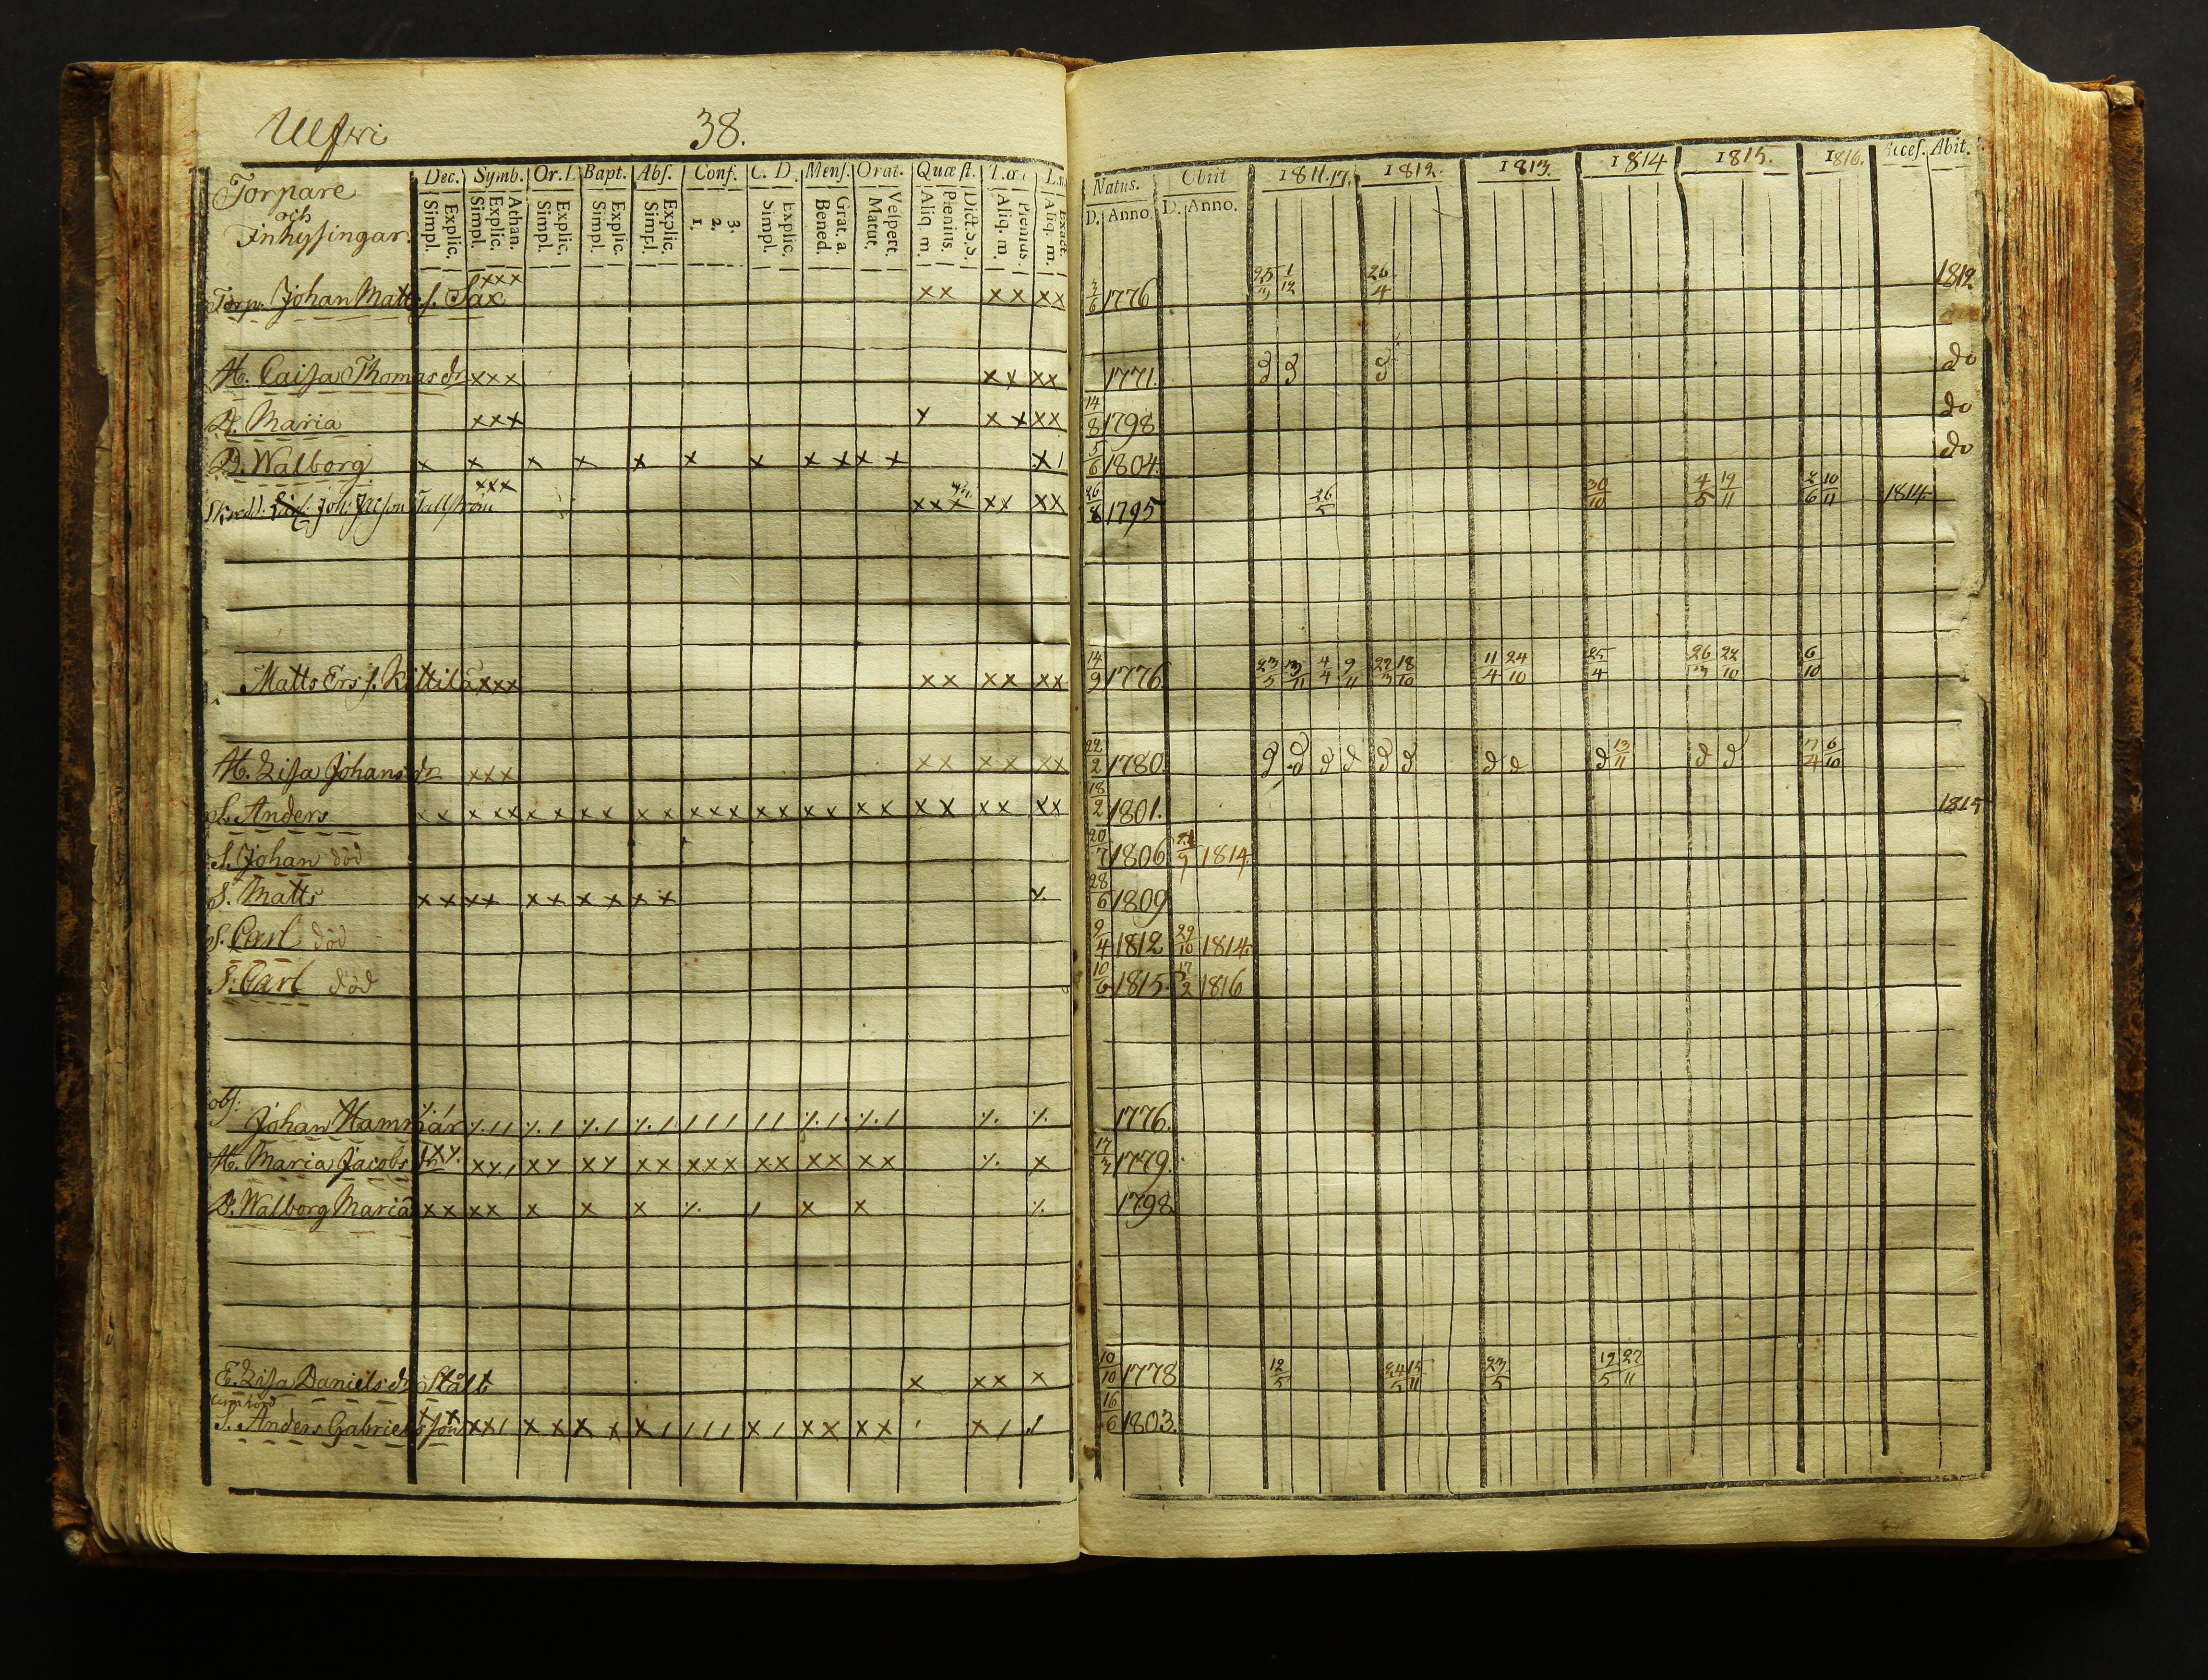 38.
Torpare
och
Inhysingar.
Dec. Symb. Or. D. Bapt. Abs. Conf. C. D. Mens. Orat. Quæst.
Explic. Simpl. Athan. Explic. Simpl. Explic. Simpl. Explic. Simpl. Explic. Simpl. 3. 2. 1. Explic. Simpl. Grat. a. Bened. Vespert. Matut. Dict. S. S. Plenius. Aliq. m. Plenius. Aliq. m. Exact. Aliq. m.
Natus. Obiit 1811.17. 1812. 1813. 1814 1815. 1816. Acces. Abit.
D. Anno. D. Anno.
Torp. Johan Matts s. Sax xxx xx xx xx 1776 25/3 1/12 26/4 1812
H. Caisa Thomas dr xxx xx xx 1771. do
D. Maria xxx x xx xx 14/8 1798 do
D. Walborg x x x x x x x x xx x x1 5/6 1804. do
Skredd. Joh: Tallström xxx xxx xx xx 26/8 1795 26/5 30/10 4/5 19/11 2/6 10/11 1814
Matts Ers s. Kittilä xxx xx xx xx 14/9 1776 23/5 3/11 4/4 9/11 22/3 18/10 11/4 24/10 25/4 26/3 22/10 6/10
H. Lisa Johans dr xxx xx xx xx 22/2 1780. d d d d d d d d d 13/11 d d 7/4 6/10
S. Anders xx xxx xx xx xx xxx xx xx xx xx xx xx 18/2 1801. 1815
S. Johan död 20/7 1806 1814.
S. Matts xx xx xx xx xx x. 28/6 1809
S. Carl död 9/4 1812 29/10 1814.
S. Carl död 10/6 1815. 17/2 1816
obs:
Johan Hammar 1776.
H. Maria Jacobs dr xx xx xx xxx xx xx xx x 17/3 1779.
D. Walborg Maria xx xx x x x x x 1798
E. Lisa Daniels dr Stålt x xx x 10/10 1778 12/5 24/5 15/11 23/5 19/5 27/11
S. Anders Gabriels son xx1 xx xx x1 111 x1 xx xx x1 16/6 1803.